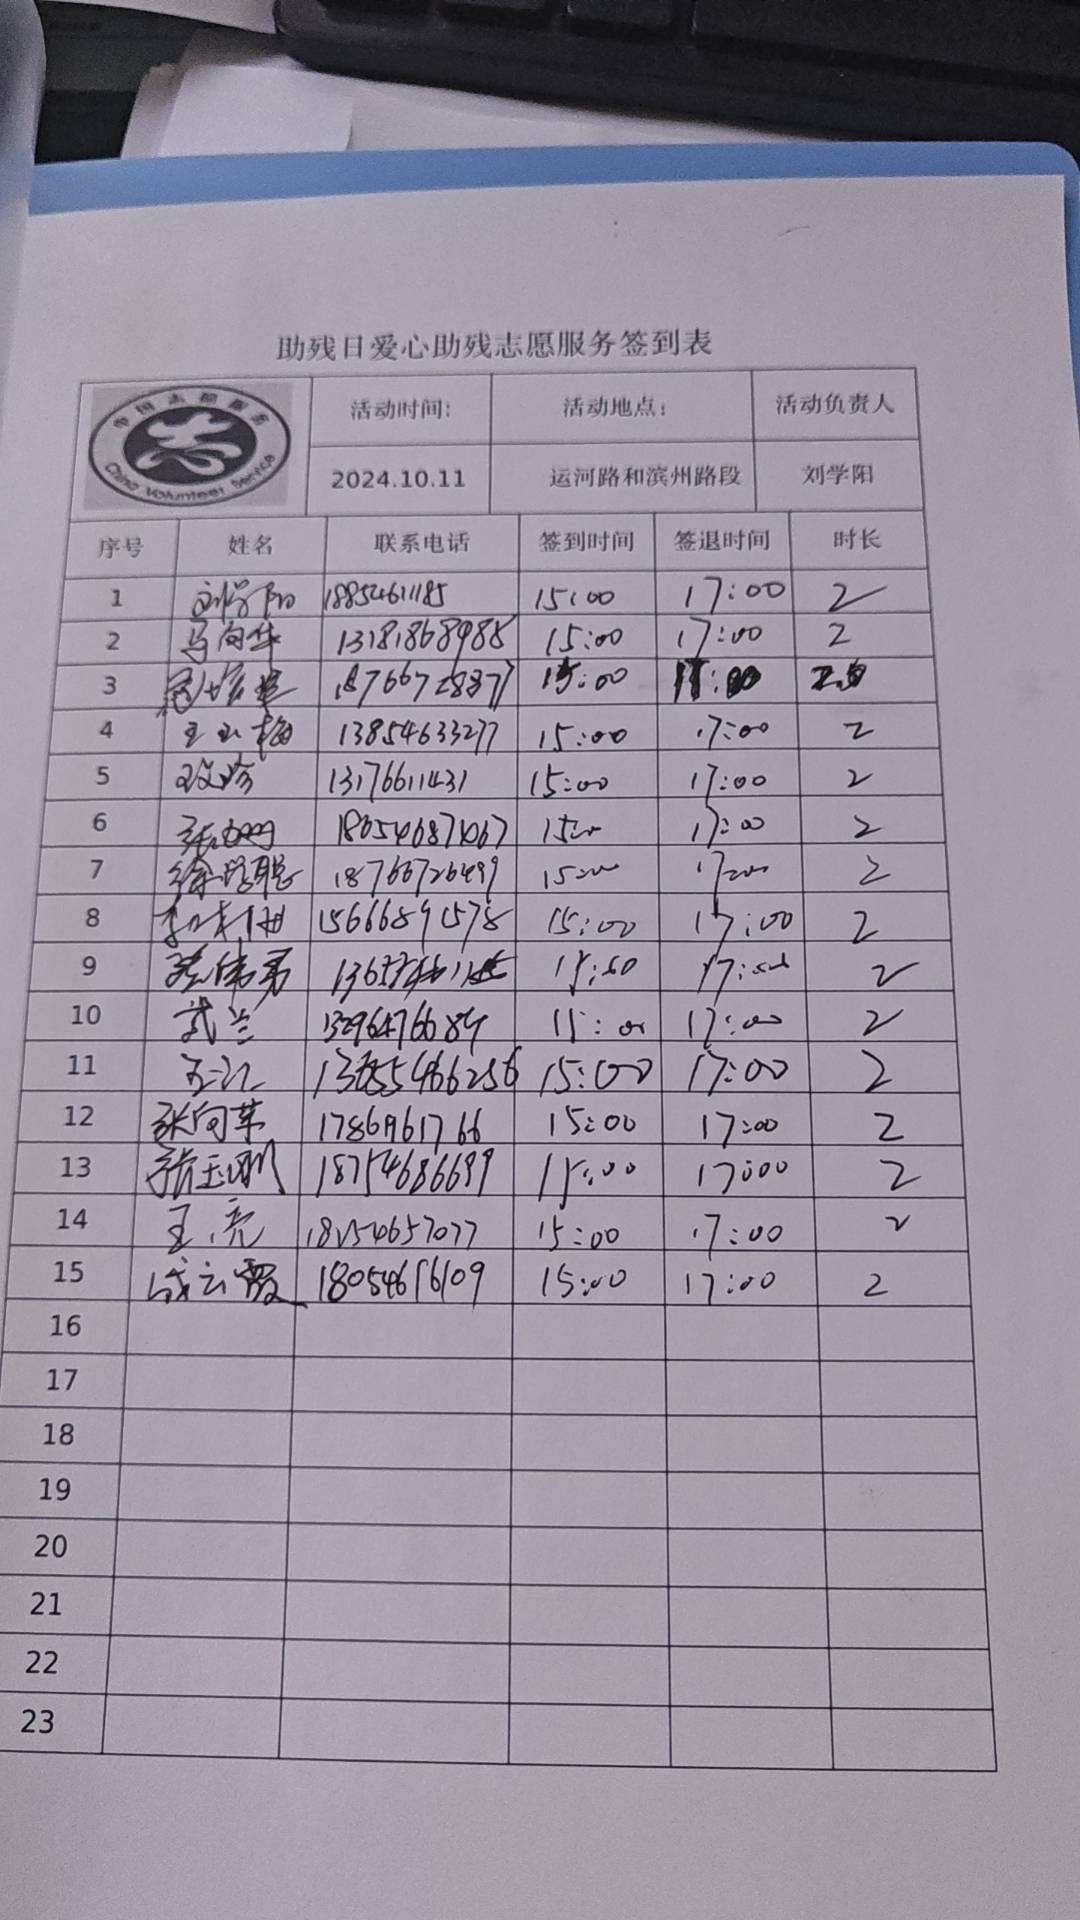 助残日爱心助残志愿服务签到表
中国志愿服务
China Volunteer Service
活动时间: 活动地点: 活动负责人
2024.10.11 运河路和滨州路段 刘学阳
序号 姓名 联系电话 签到时间 签退时间 时长
1 刘学阳 18854611185 15:00 17:00 2
2 马向华 13181868988 15:00 17:00 2
3 15:00
4 王玉梅 13854633277 15:00 17:00 2
5 13176611431 15:00 17:00 2
6 17:00 2
7 18766726499 2
8 15666891578 15:00 17:00 2
9 2
10 武兰 17:00 2
11 15:00 17:00 2
12 张向苹 15:00 17:00 2
13 张玉刚 18754686699 15:00 17:00 2
14 王亮 18254657077 15:00 17:00 2
15 成云霞 18054616109 15:00 17:00 2
16
17
18
19
20
21
22
23